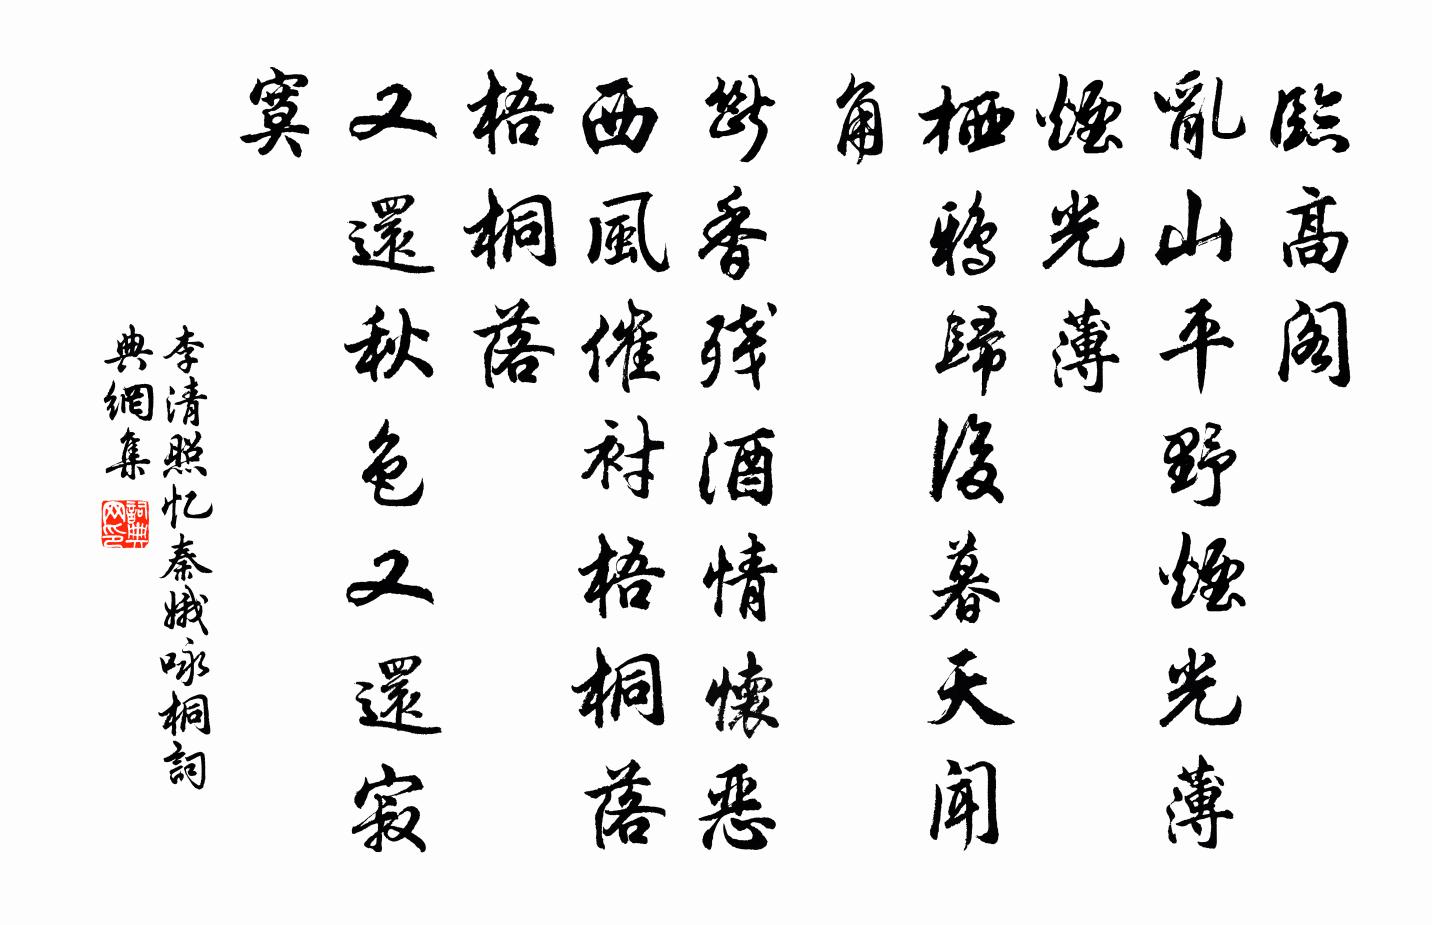 臨高阁
亂山平野煙光薄
煙光薄
栖鴉歸後暮天闻角
斷香残酒情懷恶
西風催衬梧桐落
梧桐落
又還秋色又還寂寞
李清照忆秦娥咏桐詞
典網集
詞典网印